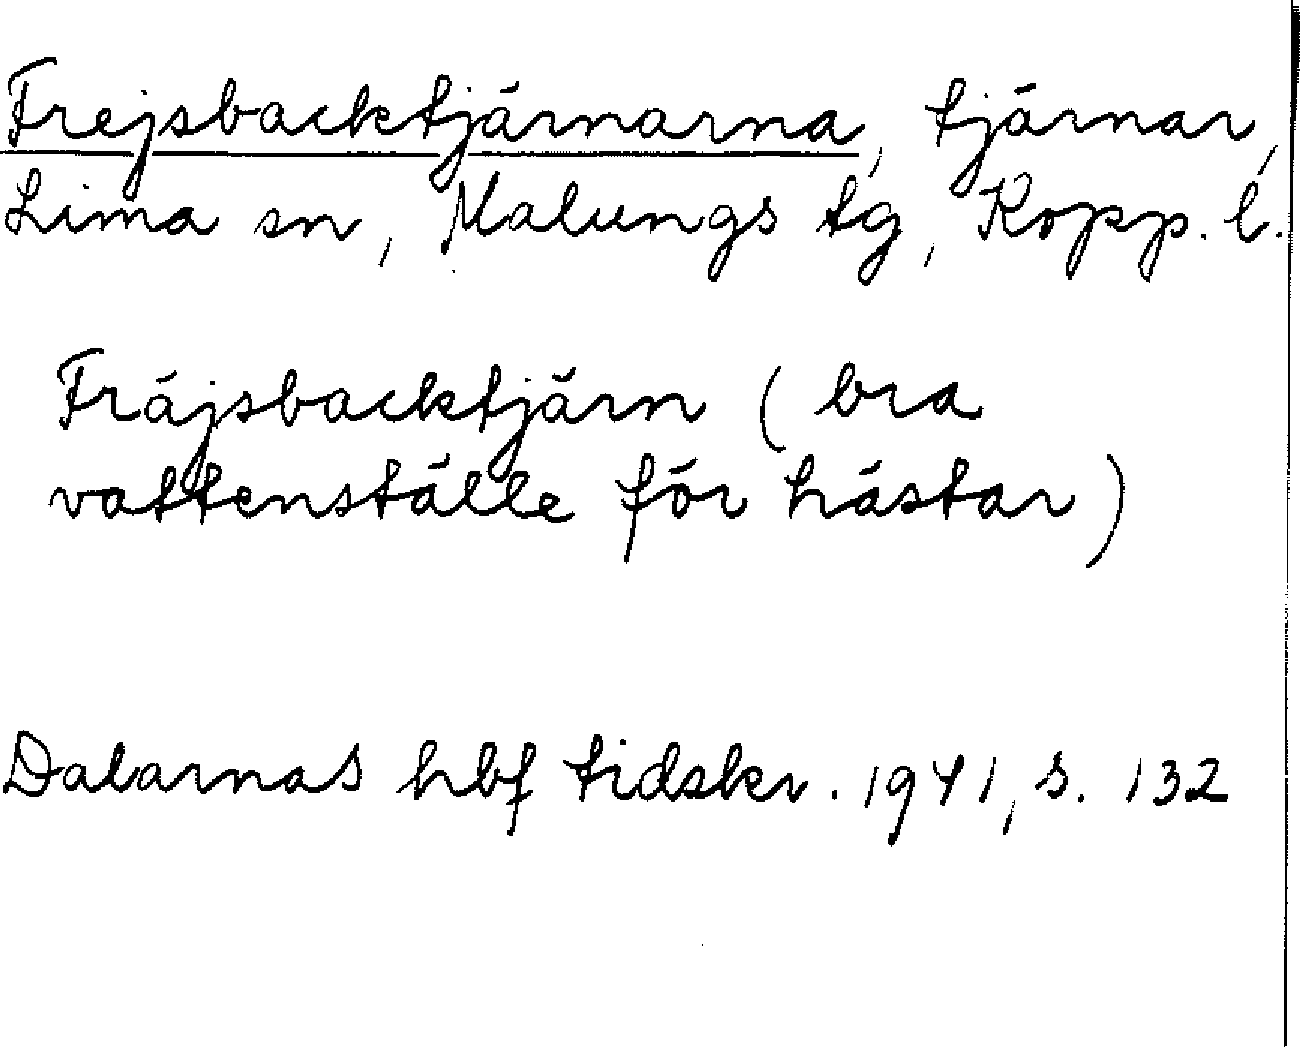 Frejsbacktjärnarna, tjärnar,
Lima sn, Malungs tg, Kopp. l.
Fräjsbacktjärn (bra
vattenställe för hästar)
Dalarnas hbf tidskr. 1941, s. 132